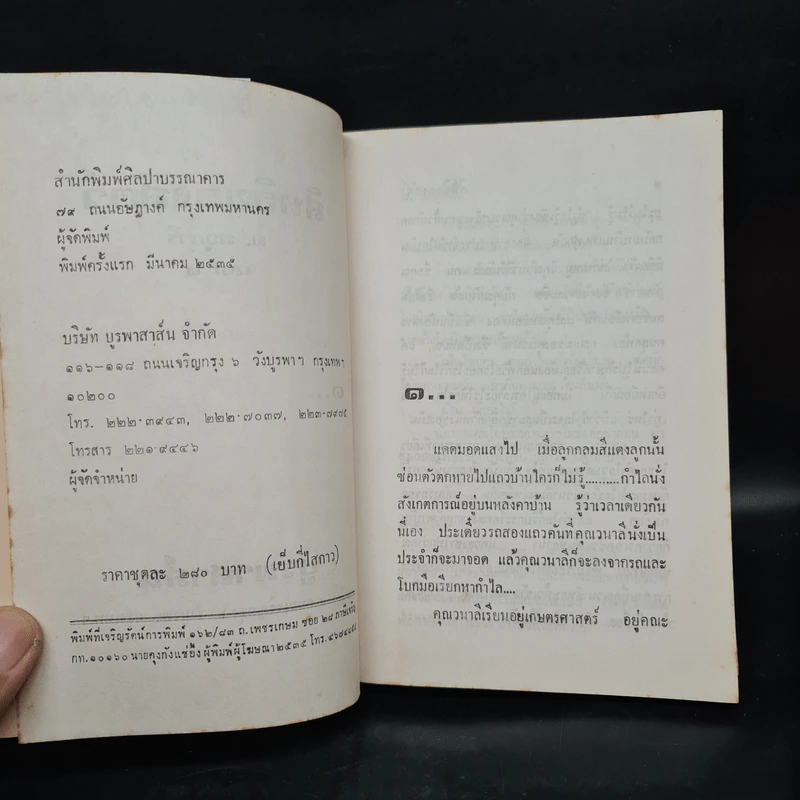 สำนักพิมพ์ศิลปาบรรณาคาร
๗๙ ถนนอัษฎางค์ กรุงเทพมหานคร
ผู้จัดพิมพ์
พิมพ์ครั้งแรก มีนาคม ๒๕๓๕
บริษัท บูรพาสาส์น จำกัด
๑๑๖–๑๑๘ ถนนเจริญกรุง ๖ วังบูรพาฯ กรุงเทพฯ
๑๐๒๐๐
โทร. ๒๒๒-๓๙๔๓, ๒๒๒-๗๐๓๗, ๒๒๓-๗๙๗๕
โทรสาร ๒๒๑-๙๔๔๖
ผู้จัดจำหน่าย
ราคาชุดละ ๒๘๐ บาท (เย็บกี่ไสกาว)
พิมพ์ที่เจริญรัตน์การพิมพ์ ๑๖๒/๘๓ ถ.เพชรเกษม ซอย ๒๘ ภาษีเจริญ
กท.๑๐๑๖๐ นายคุงกังแซ่อึ้ง ผู้พิมพ์ผู้โฆษณา ๒๕๓๕ โทร.
๑...
แดดมอดแสงไป เมื่อลูกกลมสีแดงลูกนั้น
ซ่อนตัวตกหายไปแถวบ้านใครก็ไม่รู้..........กำไลนั่ง
สังเกตการณ์อยู่บนหลังคาบ้าน รู้ว่าเวลาเดียวกัน
นี้เอง ประเดี๋ยวรถสองแถวคันที่คุณวนาลีนั่งเป็น
ประจำก็จะมาจอด แล้วคุณวนาลีก็จะลงจากรถและ
โบกมือเรียกหากำไล....
คุณวนาลีเรียนอยู่เกษตรศาสตร์ อยู่คณะ